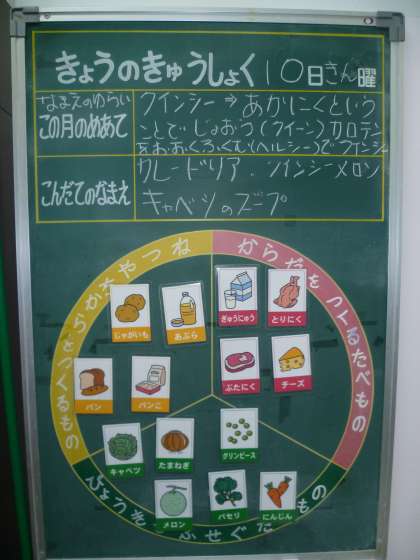 きょうのきゅうしょく 10日きん曜
なまえのゆらい
この月のめあて
クインシー⇒あかにくという
ことでじょおう(クイーン)カロテン
をおおくふくむ(ヘルシー)でクインシー
こんだてのなまえ
カレードリア.クインシーメロン
キャベツのスープ
ねつやちからをつくるもの
からだをつくるたべもの
じゃがいも
あぶら
ぎゅうにゅう
とりにく
パン
パンこ
ぶたにく
チーズ
キャベツ
たまねぎ
グリンピース
メロン
パセリ
にんじん
びょうきをふせぐたべもの